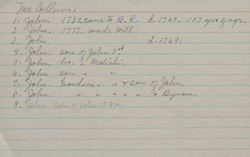 Mc Collum.
1. John. 1732 came to B. R. d. 1760. 103 yrs. 9
2. John. 1777. made Will
3. John. d. 1769.
4. John. son of John 3rd
5. John. bro. to Malachi.
6. John son " "
7. John. Grandson " + son of John.
8. John. " " " " Bynum.
9. John son of John